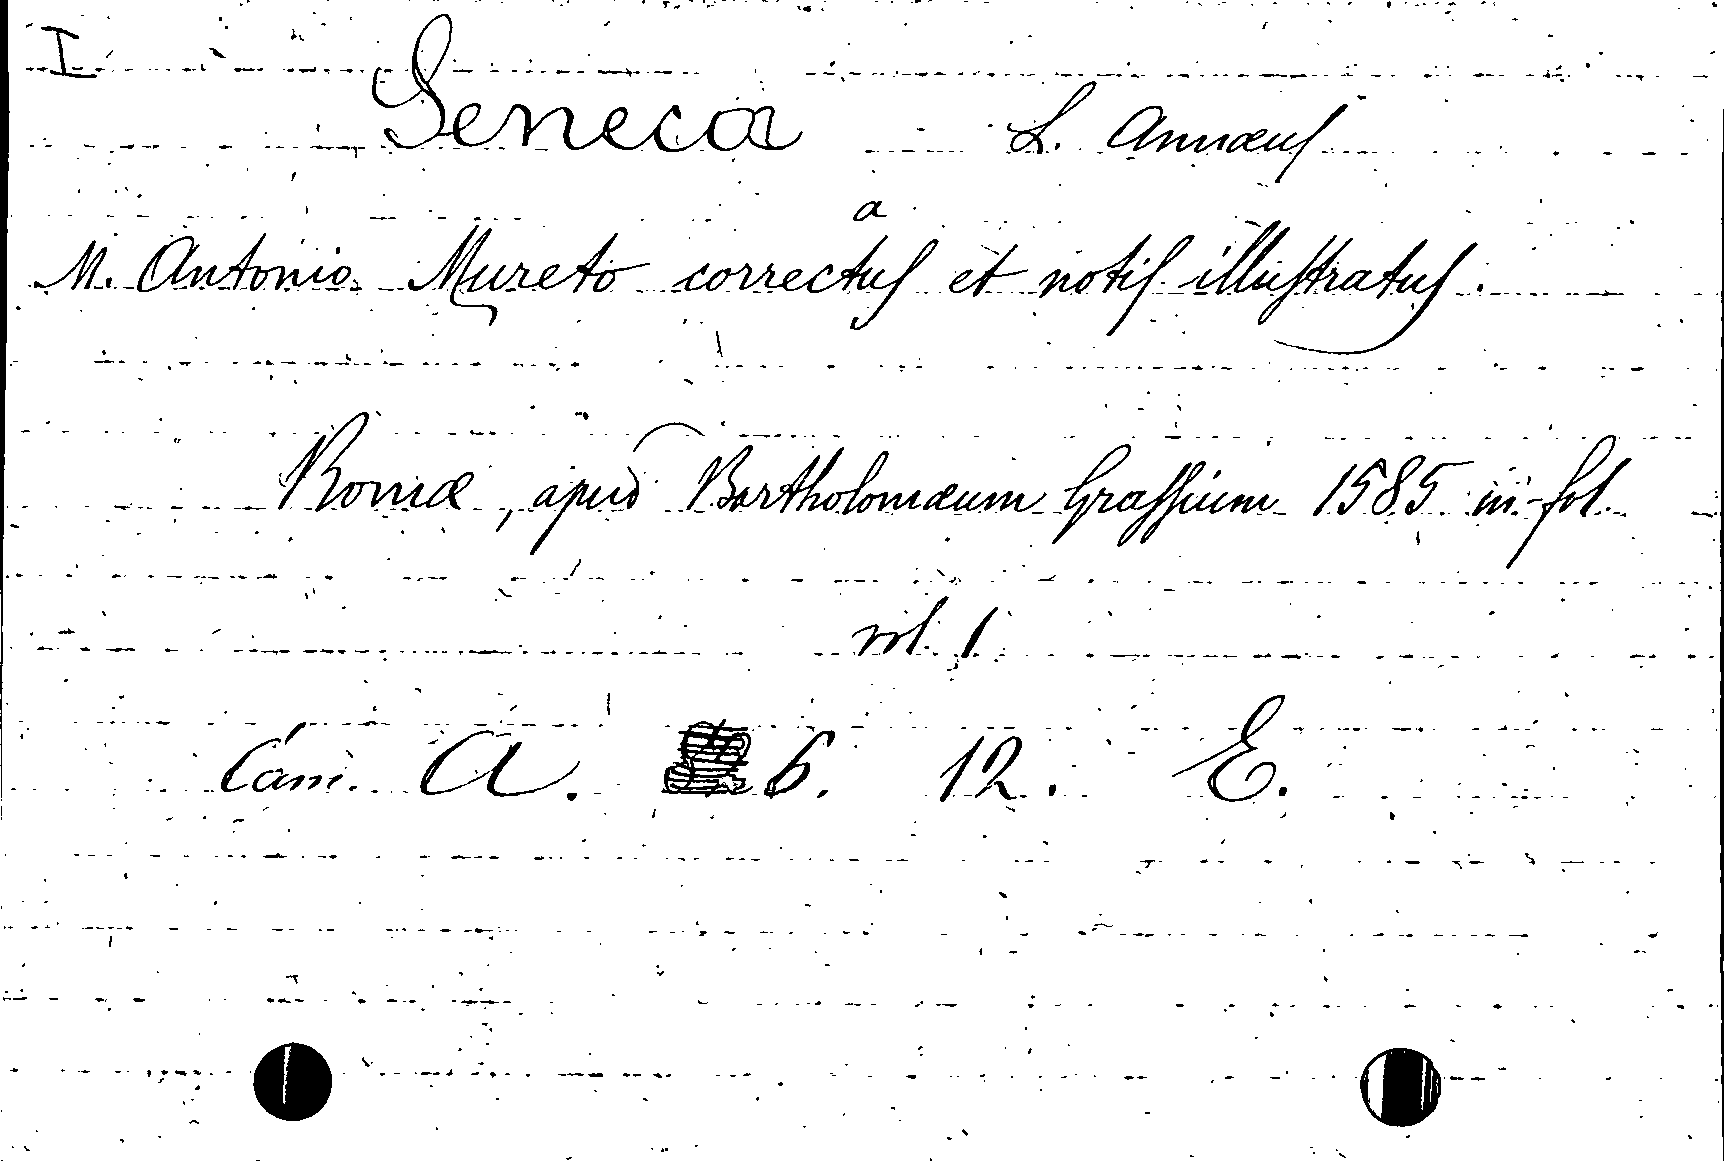 I
Seneca L. Annæus
a
M. Antonio Mureto correctus et notis illustratus.
Romæ, apud Bartholomæum Grassium 1585 in-fol.
vol. 1
Cam. A. 6. 12. E.